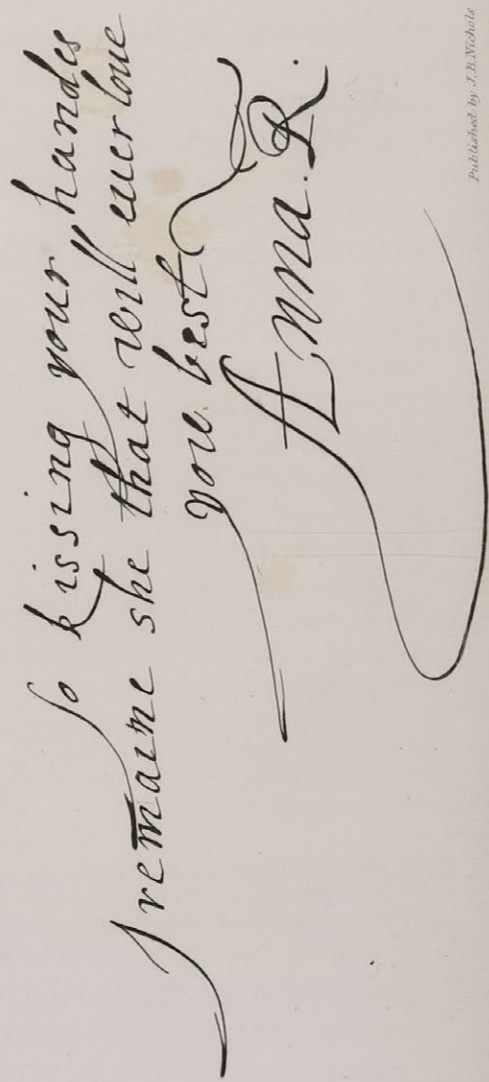 so kissing your handes
I remaine she that will euer loue
you best
Anna. R.
Published by J.B. Nichols